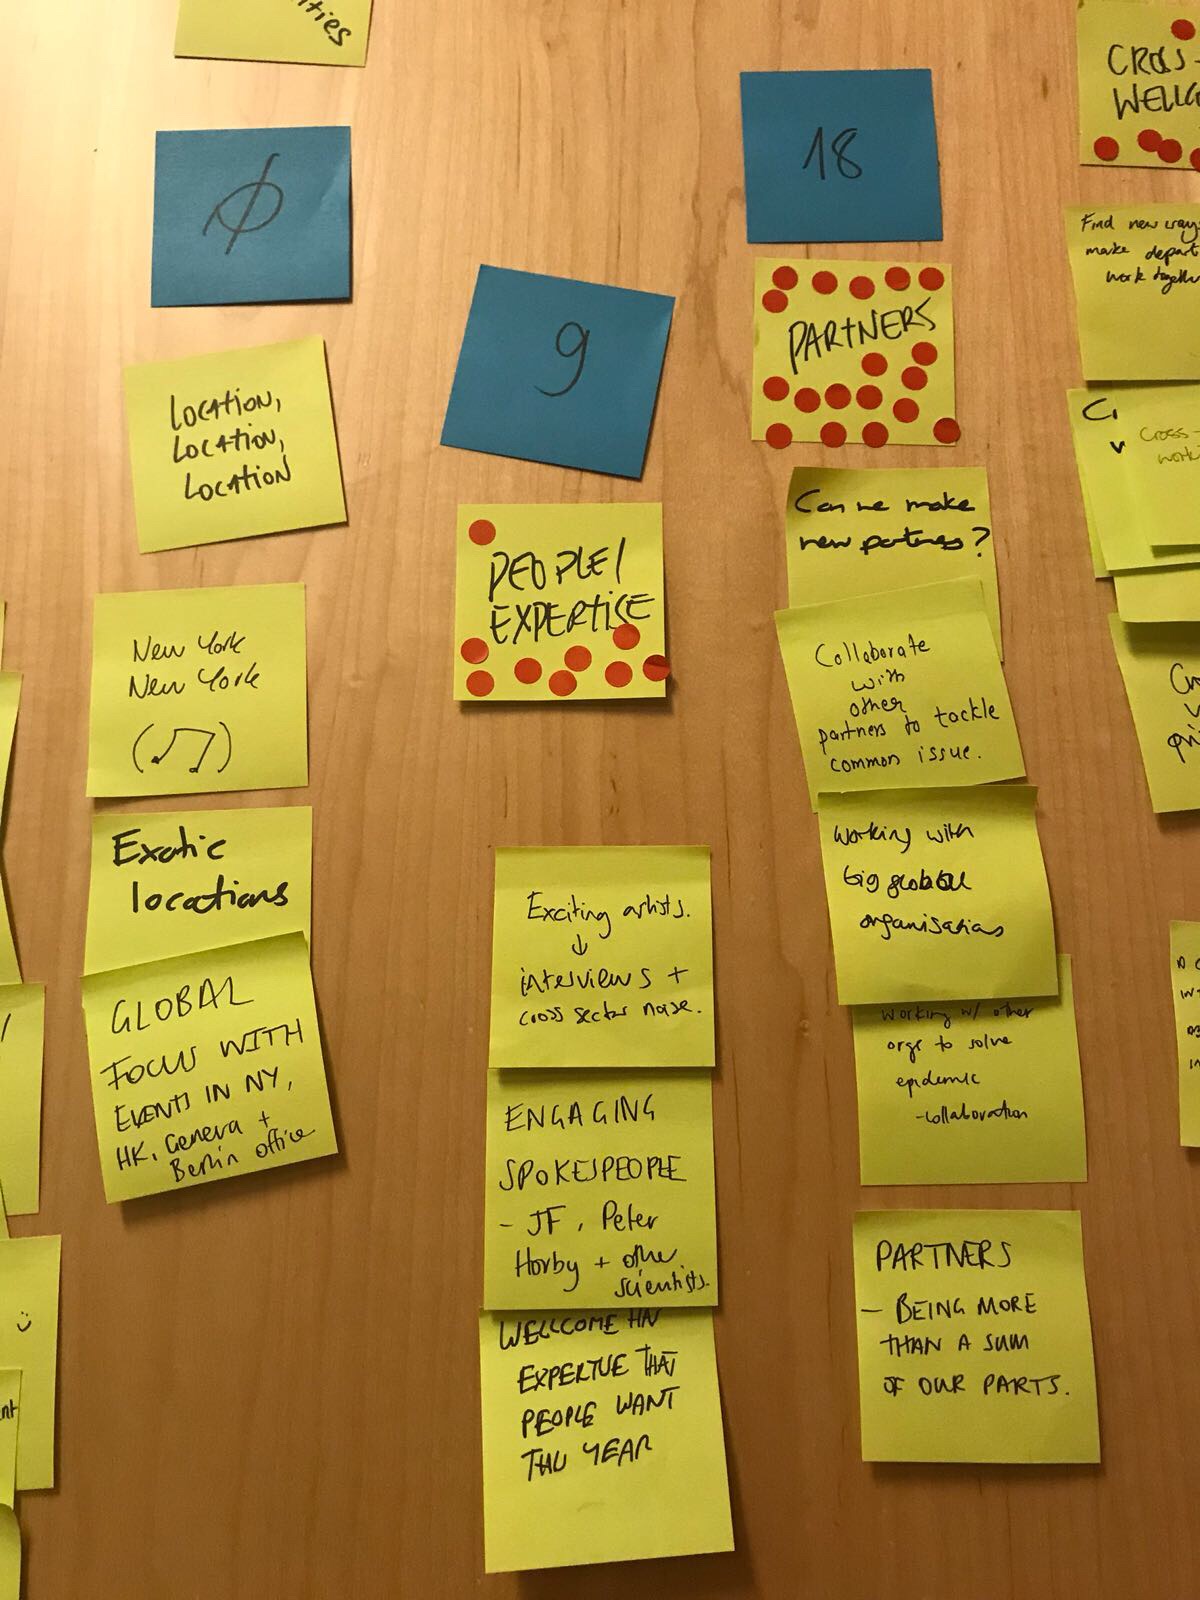 ities
Ø
LOCATION,
LOCATION,
LOCATION
New York
New York
(♫)
Exotic
locations
GLOBAL
FOCUS WITH
EVENTS IN NY,
HK, Geneva +
Berlin office
9
PEOPLE/
EXPERTISE
Exciting artists.
↓
interviews +
cross sector noise.
ENGAGING
SPOKESPEOPLE
- JF, Peter
Horby + other
scientists.
WELLCOME
EXPERTISE THAT
PEOPLE WANT
THIS YEAR
18
PARTNERS
Can we make
new partners?
Collaborate
with
other
partners to tackle
common issue.
Working with
big global
organisations
Working w/ other
orgs to solve
epidemic
- collaboration
PARTNERS
- BEING MORE
THAN A SUM
OF OUR PARTS.
CROSS-
WELLC
Find new ways
make depart
work togeth
Cross-
work